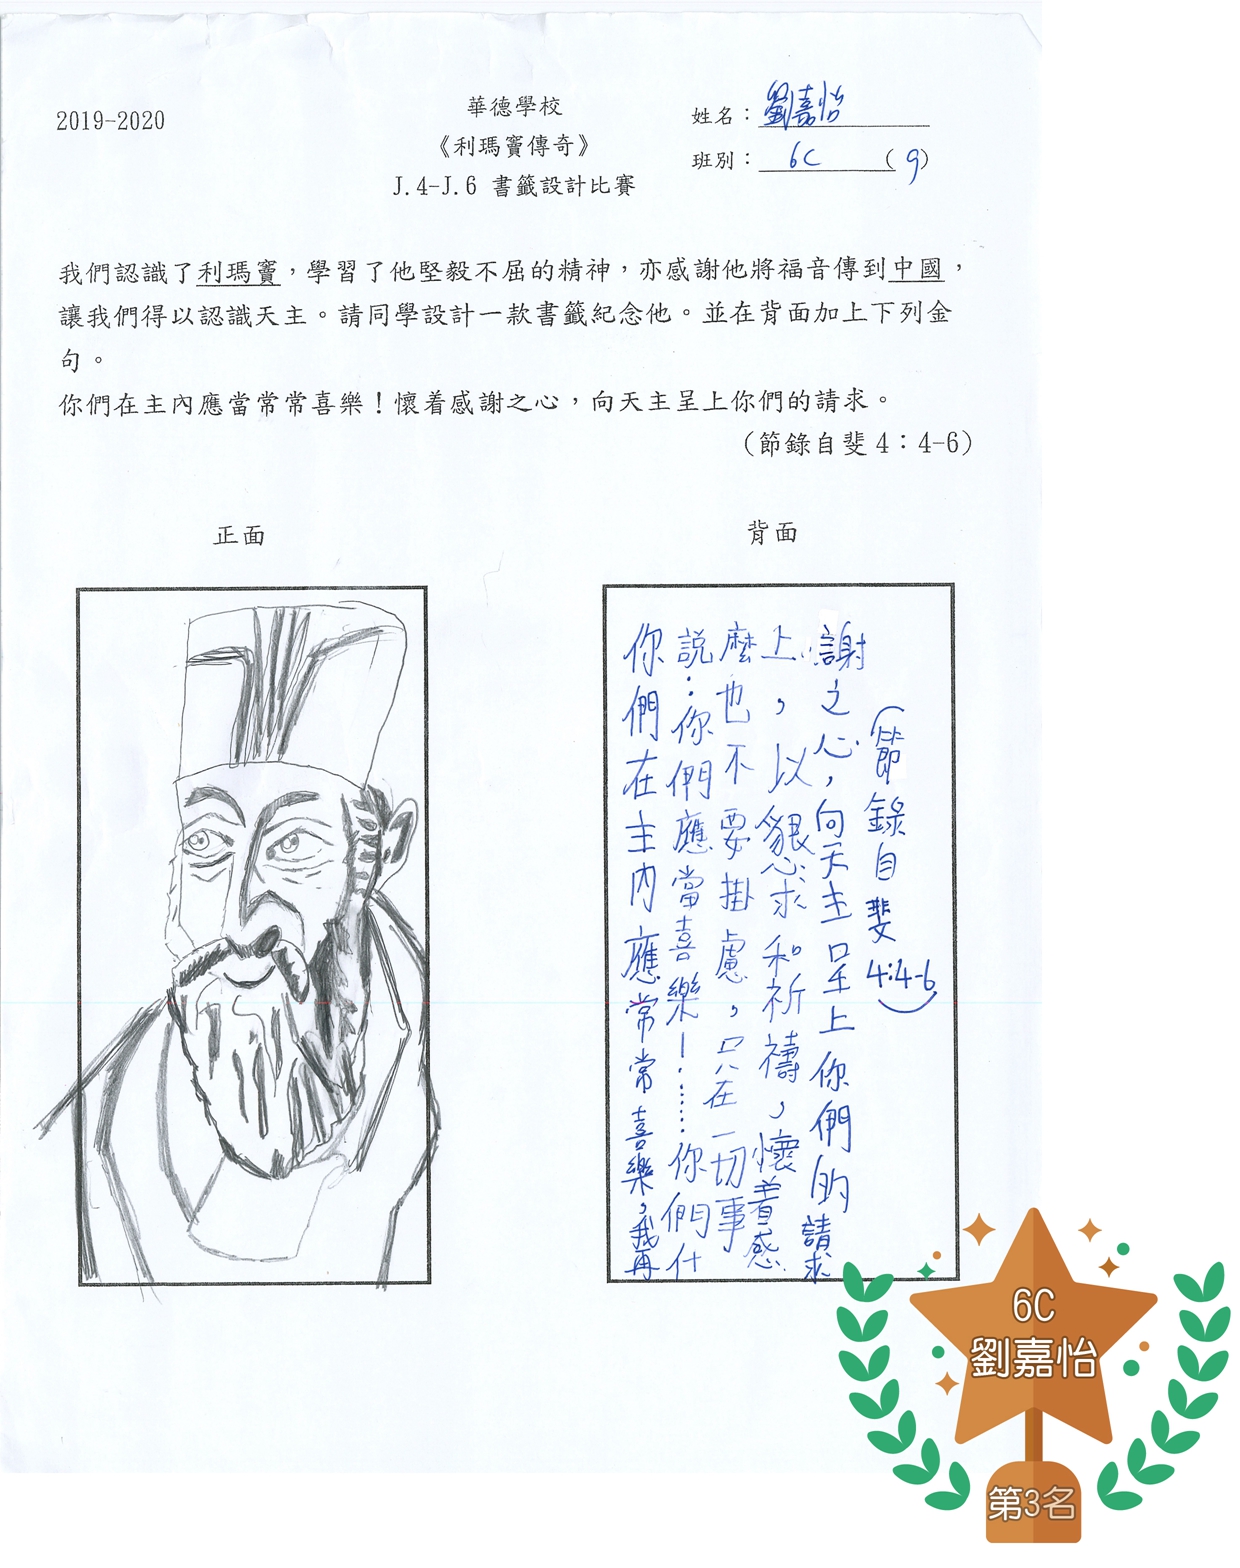 2019-2020
華德學校
《利瑪竇傳奇》
J.4-J.6 書籤設計比賽
姓名：劉嘉怡
班別：6C (9)
我們認識了利瑪竇，學習了他堅毅不屈的精神，亦感謝他將福音傳到中國，
讓我們得以認識天主。請同學設計一款書籤紀念他。並在背面加上下列金
句。
你們在主內應當常常喜樂！懷着感謝之心，向天主呈上你們的請求。
（節錄自斐 4：4-6）
正面
背面
你們在主內應常常喜樂，我再
說：你們應當喜樂！……你們什
麼也不要掛慮，只在一切事
上，以懇求和祈禱，懷着感
謝之心，向天主呈上你們的請求
（節錄自斐 4:4-6）
6C
劉嘉怡
第3名